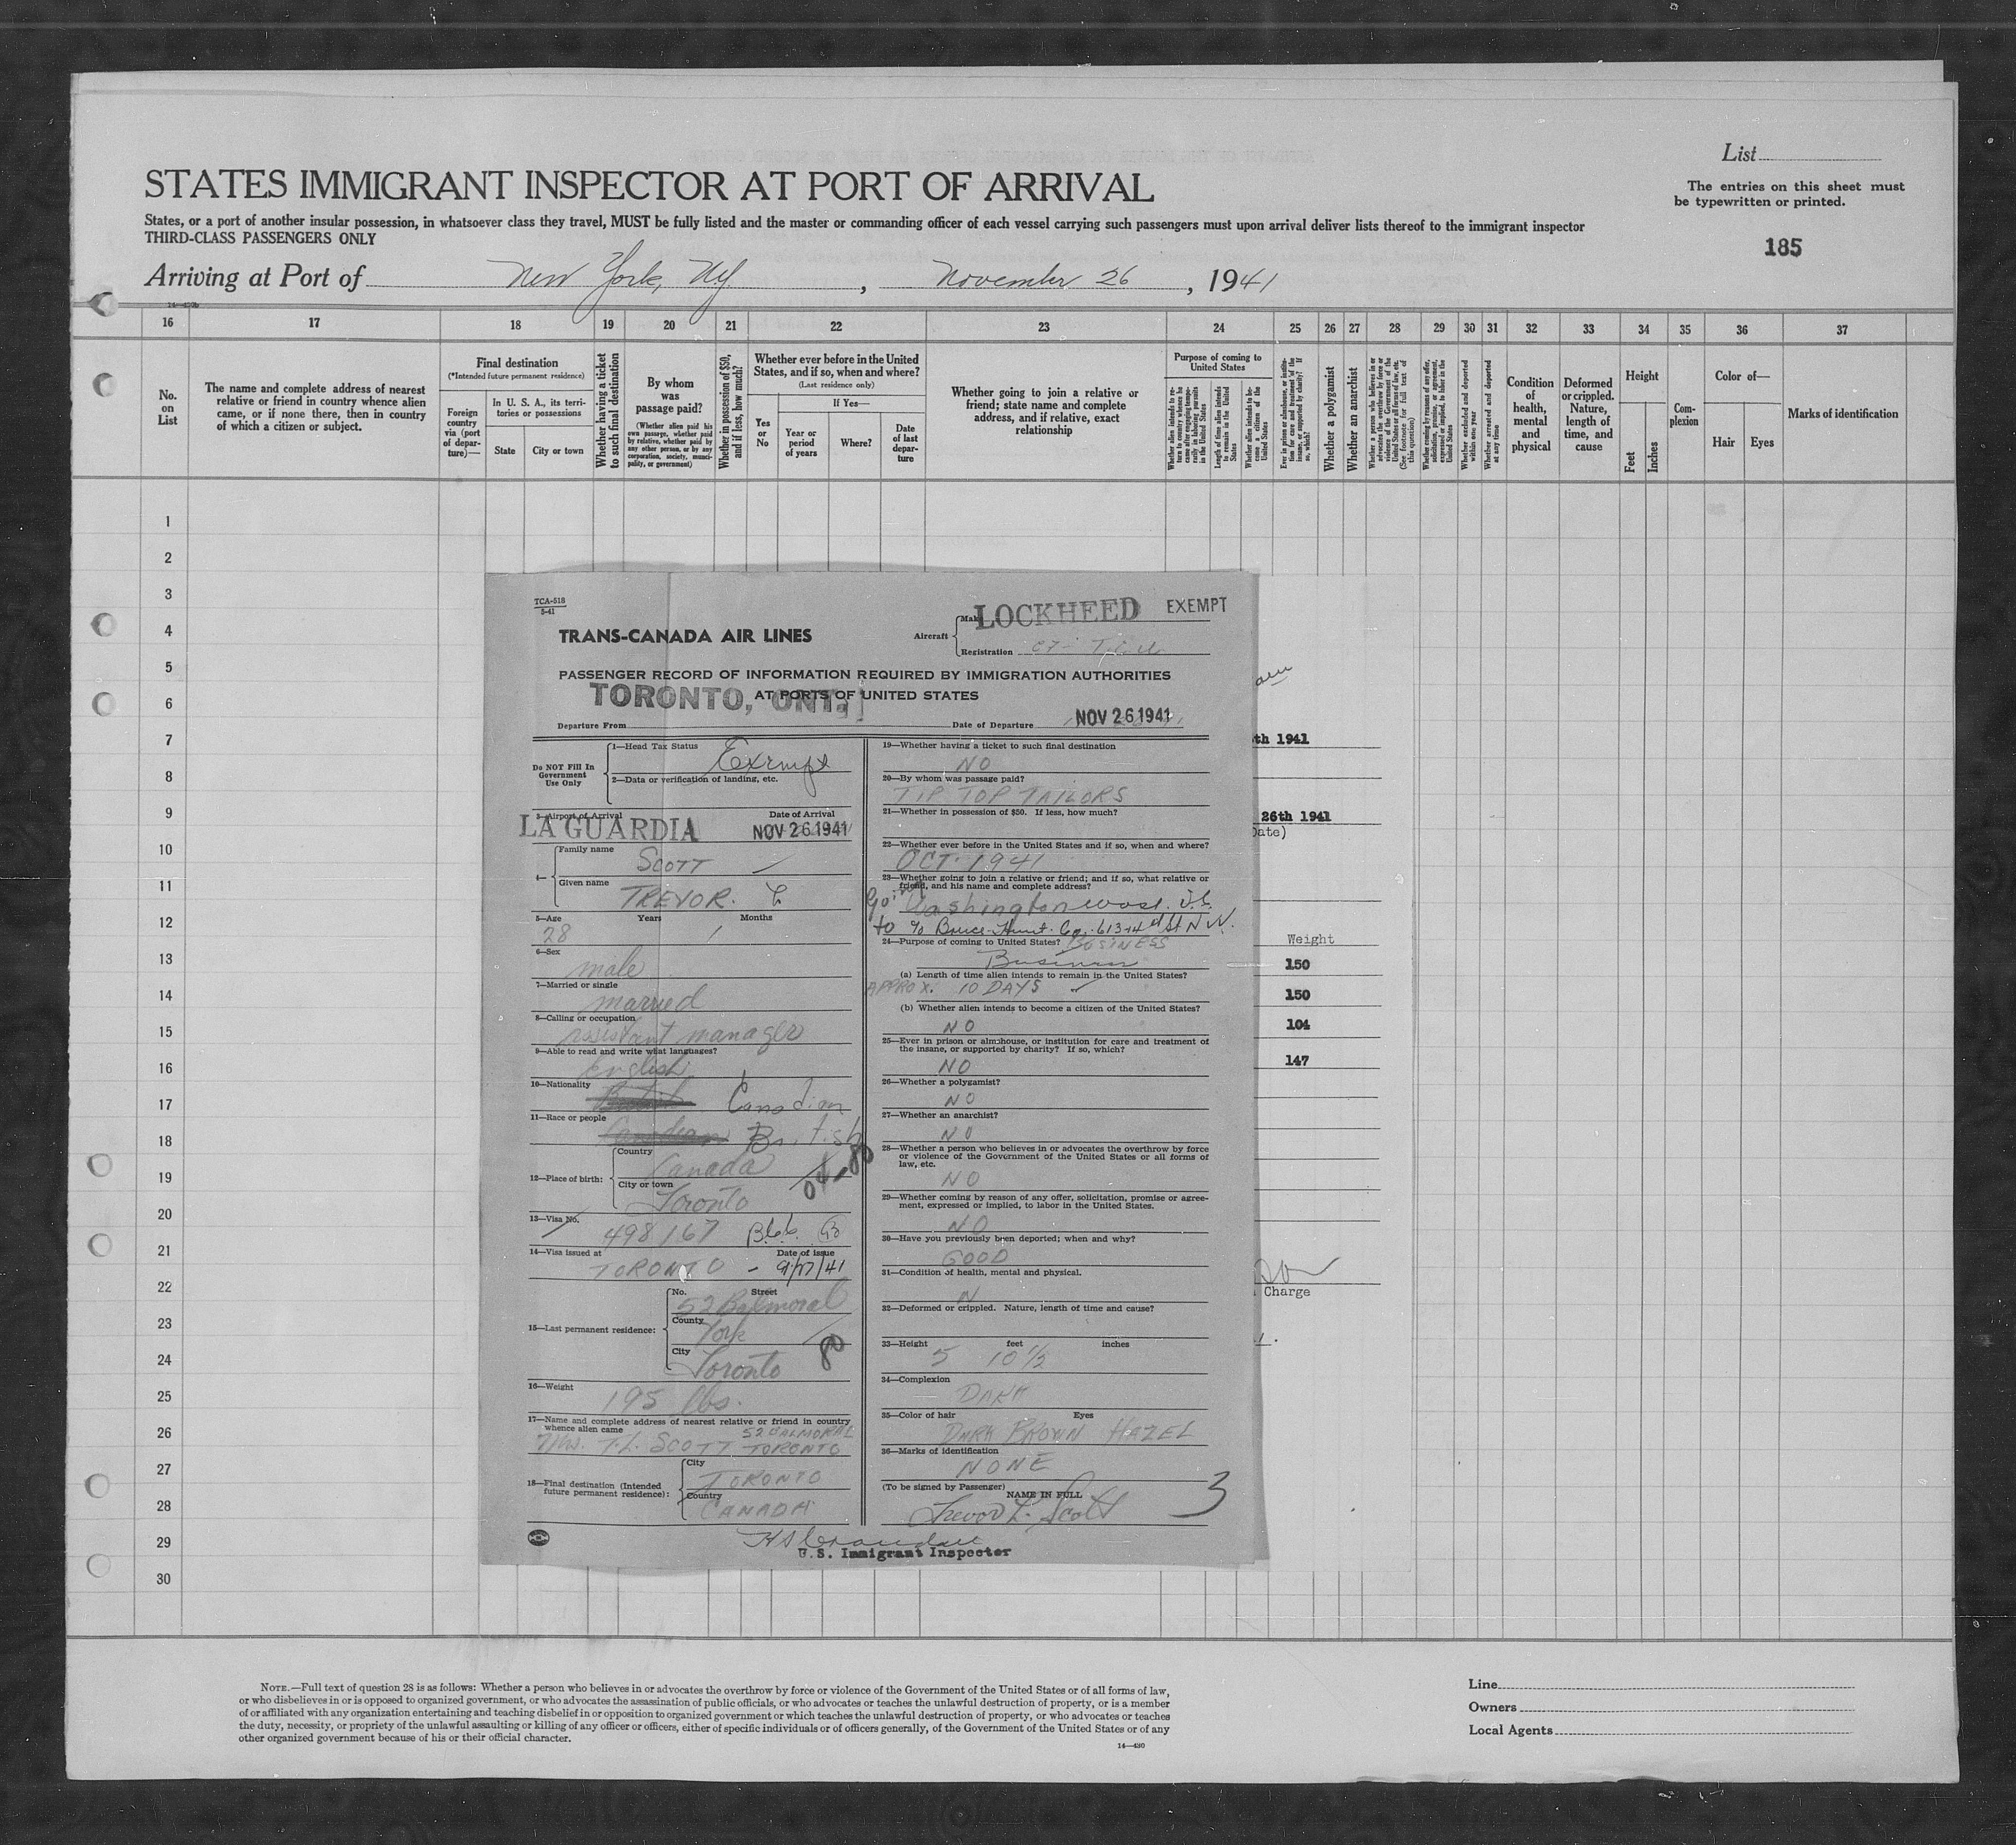 List
The entries on this sheet must
be typewritten or printed.
185
STATES IMMIGRANT INSPECTOR AT PORT OF ARRIVAL
States, or a port of another insular possession, in whatsoever class they travel, MUST be fully listed and the master or commanding officer of each vessel carrying such passengers must upon arrival deliver lists thereof to the immigrant inspector
THIRD-CLASS PASSENGERS ONLY
Arriving at Port of New York, N.Y. , November 26 , 1941
16 17 18 19 20 21 22 23 24 25 26 27 28 29 30 31 32 33 34 35 36 37
No. on List
The name and complete address of nearest
relative or friend in country whence alien
came, or if none there, then in country
of which a citizen or subject.
Final destination
(*Intended future permanent residence)
Foreign country via (port of departure)—
In U. S. A., its territories or possessions
State
City or town
Whether having a ticket to such final destination
By whom was passage paid?
(Whether alien paid his own passage, whether paid by relative, whether paid by any other person, or by any corporation, society, municipality, or government)
Whether in possession of $50, and if less, how much?
Whether ever before in the United States, and if so, when and where?
(Last residence only)
Yes or No
If Yes—
Year or period of years
Where?
Date of last departure
Whether going to join a relative or
friend; state name and complete
address, and if relative, exact
relationship
Purpose of coming to United States
Whether alien intends to return to country whence he came after engaging temporarily in laboring pursuits in the United States
Length of time alien intends to remain in the United States
Whether alien intends to become a citizen of the United States
Ever in prison or almshouse, or institution for care and treatment of the insane, or supported by charity? If so, which?
Whether a polygamist
Whether an anarchist
Whether a person who believes in or advocates the overthrow by force or violence of the Government of the United States or all forms of law, etc. (See footnote for full text of this question)
Whether coming by reason of any offer, solicitation, promise, or agreement, expressed or implied, to labor in the United States
Whether excluded and deported within one year
Whether arrested and deported at any time
Condition of health, mental and physical
Deformed or crippled. Nature, length of time, and cause
Height
Feet
Inches
Complexion
Color of—
Hair
Eyes
Marks of identification
1
2
3
4
5
6
7
8
9
10
11
12
13
14
15
16
17
18
19
20
21
22
23
24
25
26
27
28
29
30
TCA-518
5-41
TRANS-CANADA AIR LINES
Aircraft
Make LOCKHEED EXEMPT
Registration CF-
PASSENGER RECORD OF INFORMATION REQUIRED BY IMMIGRATION AUTHORITIES
AT PORTS OF UNITED STATES
TORONTO, ONT.
Departure From
Date of Departure NOV 26 1941
Do NOT Fill In
Government
Use Only
1—Head Tax Status Exempt
2—Data or verification of landing, etc.
3—Airport of Arrival LA GUARDIA
Date of Arrival NOV 26 1941
4—
Family name SCOTT
Given name TREVOR. L
5—Age Years Months
28
6—Sex male
7—Married or single married
8—Calling or occupation assistant manager
9—Able to read and write what languages? english
10—Nationality British Canadian
11—Race or people Canadian British
12—Place of birth:
Country Canada
City or town Toronto
04-80
13—Visa No. 498167 B.C.C.
14—Visa issued at TORONTO
Date of issue 9/17/41
15—Last permanent residence:
No. Street 52 Balmoral
County York
City Toronto
80
16—Weight 195 lbs.
17—Name and complete address of nearest relative or friend in country
whence alien came
T.L. SCOTT 52 BALMORAL TORONTO
18—Final destination (Intended
future permanent residence):
City TORONTO
Country CANADA
19—Whether having a ticket to such final destination
NO
20—By whom was passage paid?
TIP TOP TAILORS
21—Whether in possession of $50. If less, how much?
22—Whether ever before in the United States and if so, when and where?
OCT. 1941
23—Whether going to join a relative or friend; and if so, what relative or
friend, and his name and complete address?
Going to Washington
% Bruce Hunt Co. 613-14th St N.W.
24—Purpose of coming to United States? BUSINESS
Business
(a) Length of time alien intends to remain in the United States?
APPROX. 10 DAYS
(b) Whether alien intends to become a citizen of the United States?
NO
25—Ever in prison or almshouse, or institution for care and treatment of
the insane, or supported by charity? If so, which?
NO
26—Whether a polygamist?
NO
27—Whether an anarchist?
NO
28—Whether a person who believes in or advocates the overthrow by force
or violence of the Government of the United States or all forms of
law, etc.
NO
29—Whether coming by reason of any offer, solicitation, promise or agree-
ment, expressed or implied, to labor in the United States.
NO
30—Have you previously been deported; when and why?
GOOD
31—Condition of health, mental and physical.
N
32—Deformed or crippled. Nature, length of time and cause?
33—Height feet inches
5 10 1/2
34—Complexion
DARK
35—Color of hair Eyes
DARK BROWN HAZEL
36—Marks of identification
NONE
(To be signed by Passenger)
NAME IN FULL
Trevor L. Scott
3
U.S. Immigrant Inspector
th 1941
26th 1941
Date)
Weight
150
150
104
147
Charge
NOTE.—Full text of question 28 is as follows: Whether a person who believes in or advocates the overthrow by force or violence of the Government of the United States or of all forms of law,
or who disbelieves in or is opposed to organized government, or who advocates the assassination of public officials, or who advocates or teaches the unlawful destruction of property, or is a member
of or affiliated with any organization entertaining and teaching disbelief in or opposition to organized government or which teaches the unlawful destruction of property, or who advocates or teaches
the duty, necessity, or propriety of the unlawful assaulting or killing of any officer or officers, either of specific individuals or of officers generally, of the Government of the United States or of any
other organized government because of his or their official character.
14—430
Line
Owners
Local Agents